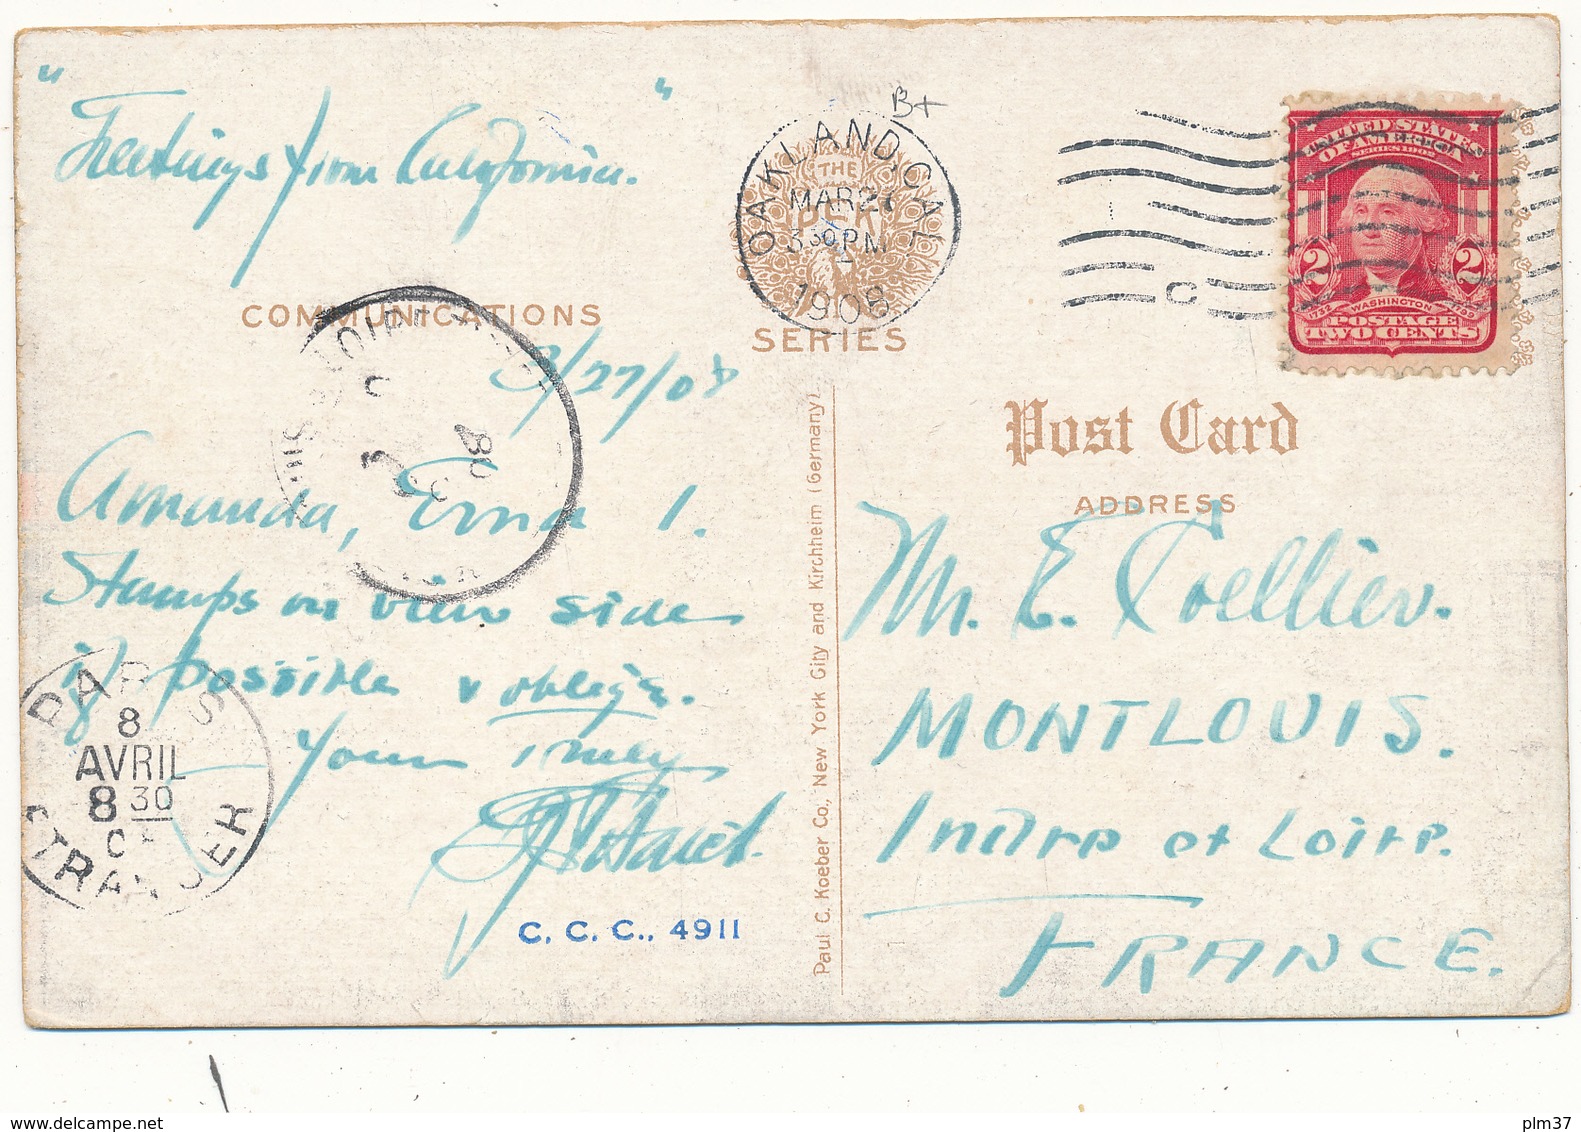 "Greetings from California."
COMMUNICATIONS
3/27/08
Amanda, Erna 1.
Stamps on view side
if possible & oblige.
Yours truly
C. C. C., 4911
PARIS
8
AVRIL
8 30
ETRANGER
OAKLAND, CAL.
MAR 27
3 30 PM
1908
B+
THE
PCK
SERIES
Paul C. Koeber Co., New York City and Kirchheim (Germany).
C
UNITED STATES
OF AMERICA
SERIES 1902
2 2
1732 WASHINGTON 1799
POSTAGE
TWO CENTS
Post Card
ADDRESS
Mr. E. Coellier.
MONTLOUIS.
Indre et Loire.
FRANCE.
www.delcampe.net
plm37